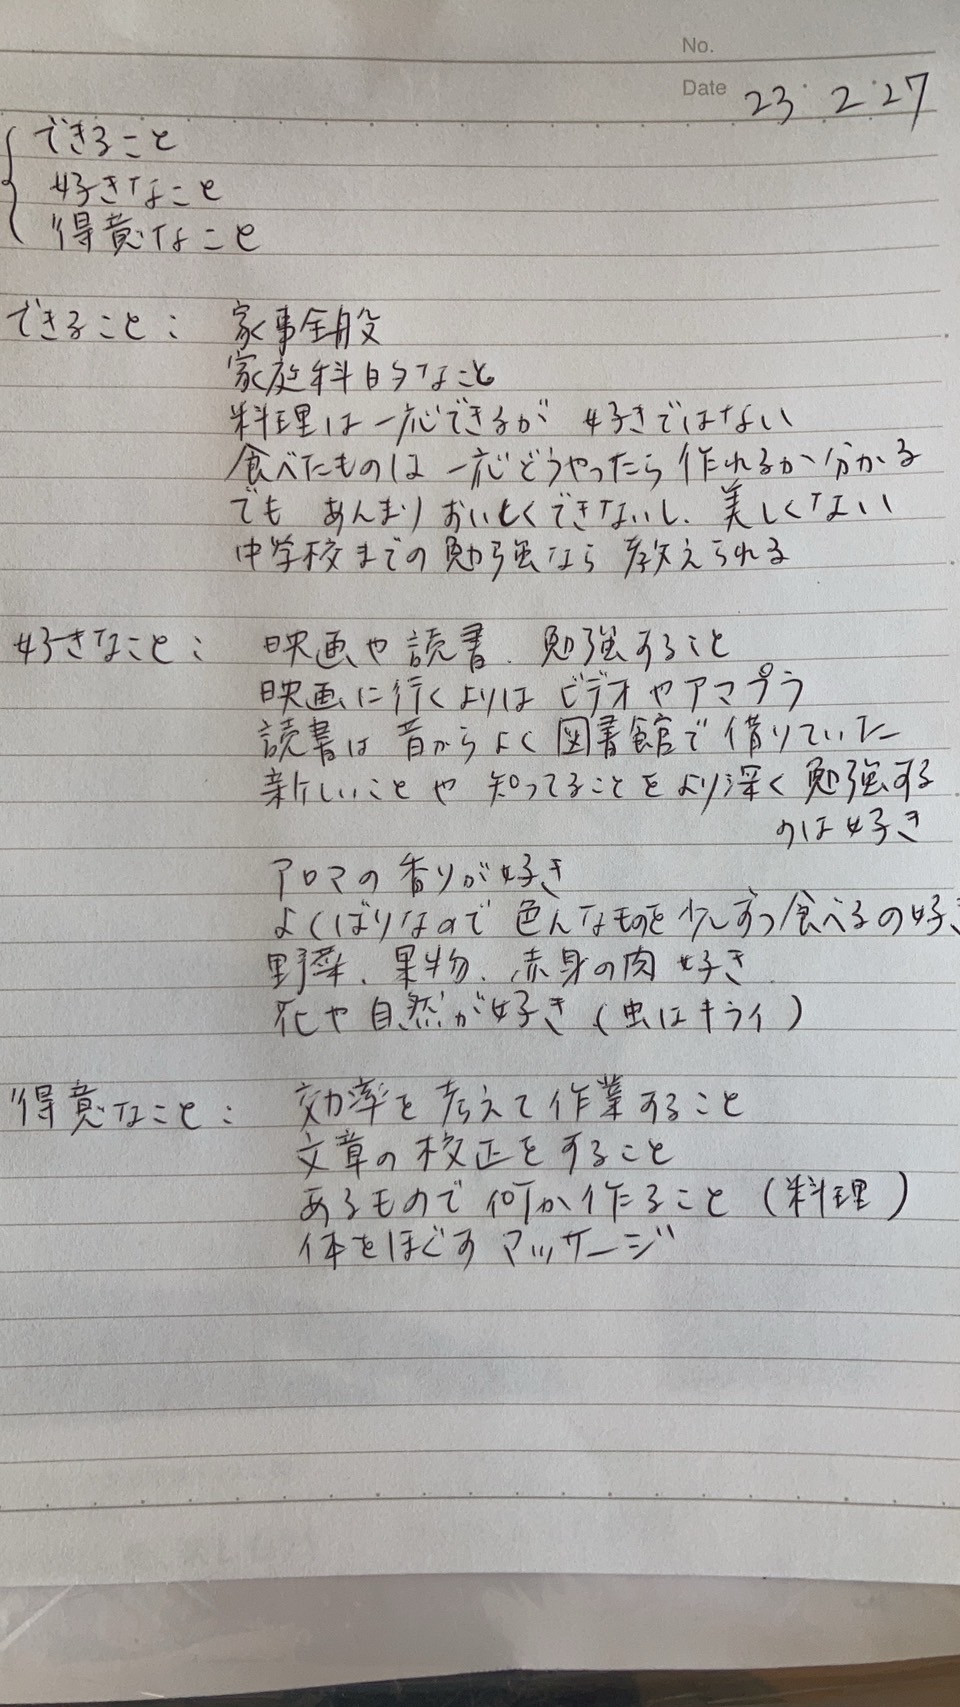 No.
Date 23・2・27
できること
好きなこと
得意なこと
できること： 家事全般
家庭科的なこと
料理は一応できるが 好きではない
食べたものは 一応どうやったら作れるか分かる
でも あんまりおいしくできないし、美しくない
中学校までの勉強なら 教えられる
好きなこと： 映画や読書、勉強すること
映画に行くよりは ビデオやアマプラ
読書は昔からよく図書館で借りていた
新しいことや 知ってることをより深く勉強する
のは好き
アロマの香りが好き
よくばりなので 色んなものを少しずつ食べるの好き
野菜、果物、赤身の肉 好き
花や自然が好き（虫はキライ）
得意なこと： 効率を考えて作業すること
文章の校正をすること
あるもので何か作ること（料理）
体をほぐすマッサージ